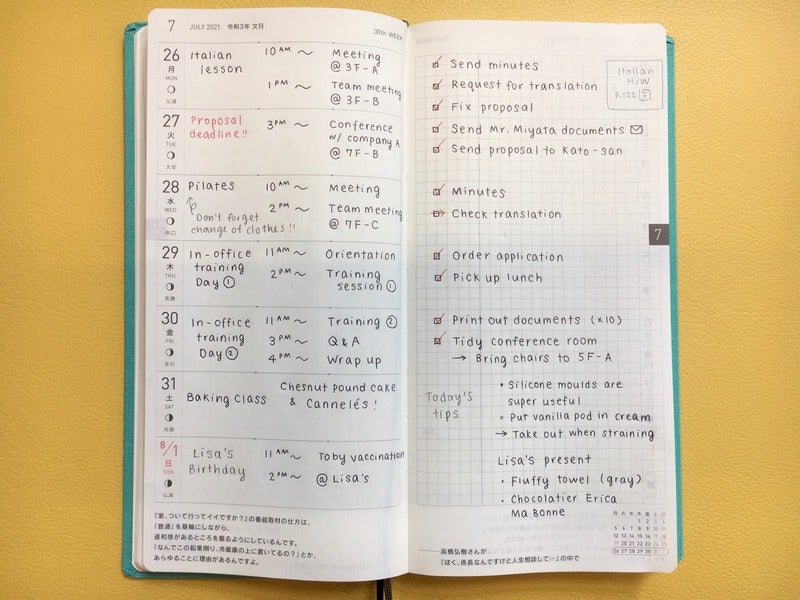 7 JULY 2021 令和3年 文月
30th WEEK
26 月 MON 仏滅
Italian lesson
10 AM ~ Meeting @ 3F-A
1 PM ~ Team meeting @ 3F-B
27 火 TUE 大安
Proposal deadline!!
3 PM ~ Conference w/ company A @ 7F-B
28 水 WED 赤口
Pilates
Don't forget change of clothes!!
10 AM ~ Meeting
2 PM ~ Team meeting @ 7F-C
29 木 THU 先勝
In-office training Day ①
11 AM ~ Orientation
2 PM ~ Training session ①
30 金 FRI 友引
In-office training Day ②
11 AM ~ Training ②
3 PM ~ Q & A
4 PM ~ Wrap up
31 土 SAT 先負
Baking class
Chesnut pound cake & Cannelés!
8/1 日 SUN 仏滅
Lisa's Birthday
11 AM ~ Toby vaccination
2 PM ~ @ Lisa's
『家、ついて行ってイイですか?』の番組取材の仕方は、
「普通」を基軸にしながら、
違和感があるところを掘るようにしているんです。
「なんでこの鉛筆削り、冷蔵庫の上に置いてるの?」とか、
あらゆることに理由があるんですよ。
Send minutes
Request for translation
Fix proposal
Italian H/W P.122 2
Send Mr. Miyata documents
Send proposal to Kato-san
Minutes
Check translation
7
Order application
Pick up lunch
Print out documents (×10)
Tidy conference room
→ Bring chairs to 5F-A
Today's tips
• Silicone moulds are super useful
• Put vanilla pod in cream
→ Take out when straining
Lisa's present
• Fluffy towel (gray)
• Chocolatier Erica
Ma Bonne
月 火 水 木 金 土 日
1 2 3 4
5 6 7 8 9 10 11
12 13 14 15 16 17 18
19 20 21 22 23 24 25
26 27 28 29 30 31
——高橋弘樹さんが
『ぼく、係長なんですけど人生相談して…』の中で